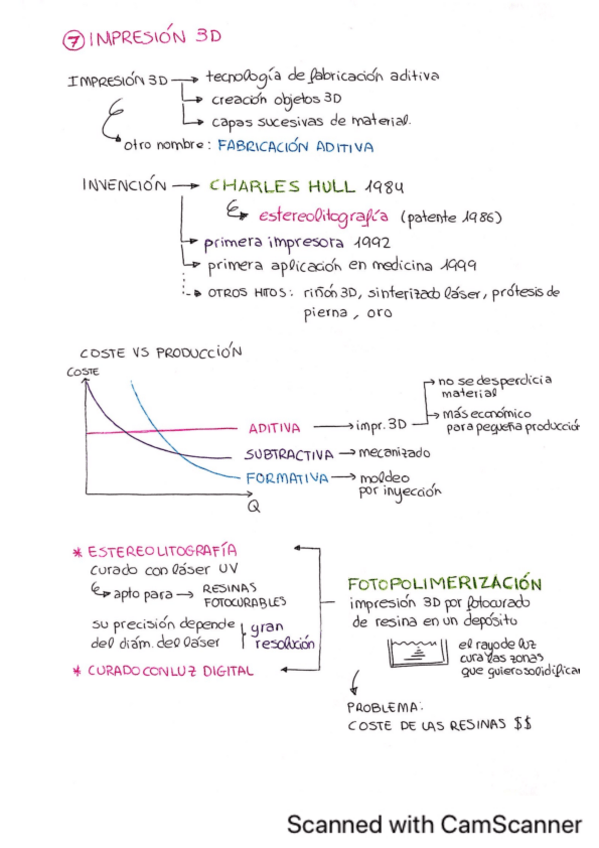 7 IMPRESIÓN 3D
IMPRESIÓN 3D → tecnología de fabricación aditiva
→ creación objetos 3D
→ capas sucesivas de material.
otro nombre: FABRICACIÓN ADITIVA
INVENCIÓN → CHARLES HULL 1984
estereolitografía (patente 1986)
primera impresora 1992
primera aplicación en medicina 1999
OTROS HITOS: riñón 3D, sinterizado láser, prótesis de
pierna, oro
COSTE VS PRODUCCIÓN
COSTE
ADITIVA → impr. 3D
no se desperdicia
material
más económico
para pequeña producción
SUBTRACTIVA → mecanizado
FORMATIVA → moldeo
por inyección
Q
* ESTEREOLITOGRAFÍA
curado con láser UV
apto para → RESINAS
FOTOCURABLES
su precisión depende
del diám. del láser
gran
resolución
* CURADO CON LUZ DIGITAL
FOTOPOLIMERIZACIÓN
impresión 3D por fotocurado
de resina en un depósito
el rayo de luz
cura las zonas
que quiero solidificar
PROBLEMA:
COSTE DE LAS RESINAS $$
Scanned with CamScanner